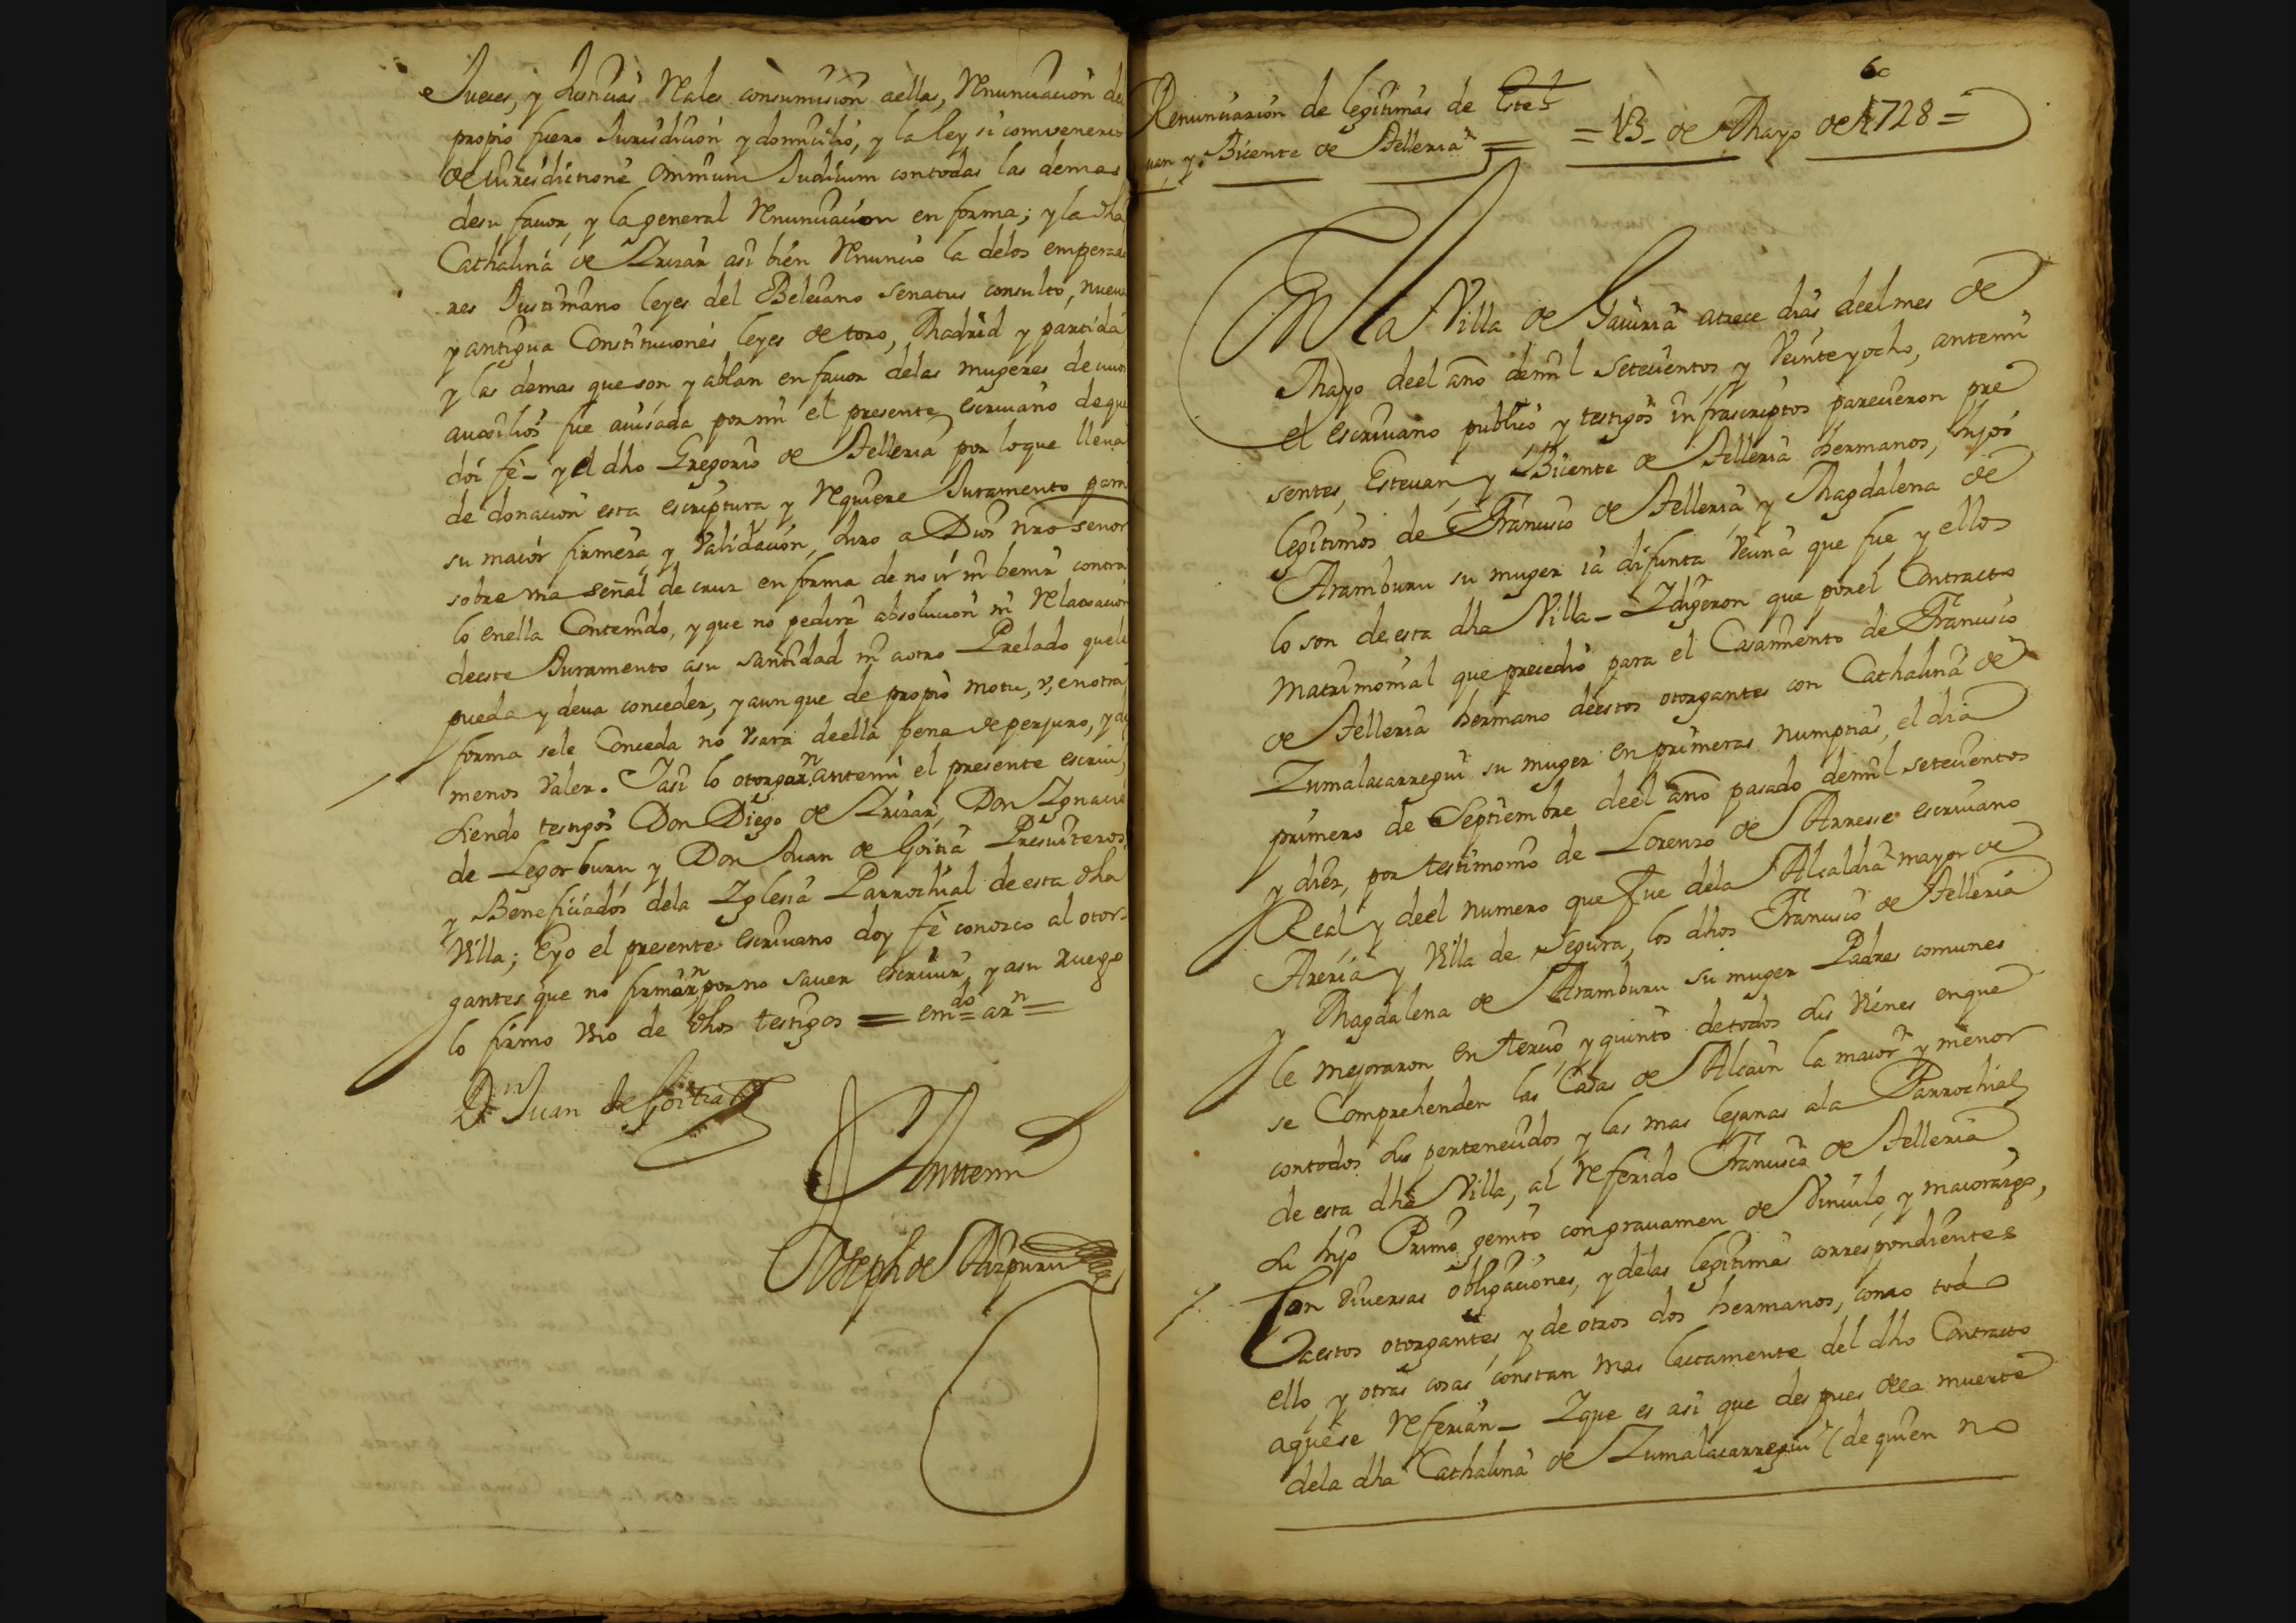 Jueces, y Justicias Reales consumision aellas, Renunciacion del
propio fuero Jurisdicion y domicilio, y la ley si convenerit
de Jurisdictione Omnium Judicum contodas las demas
desu favor, y la general Renunciacion en forma; y la dha
Cathalina de Irizar asi bien Renuncio la delos emperado
res Justiniano leyes del Beleiano senatus consulto, nueua
y antigua Constituciones leyes de toro, Madrid y partida
y las demas que son, y ablan en fauor delas mugeres de cuio
auxilios fue auisada por mi el presente escriuano de que
doi fè - y el dho Gregorio de Telleria por loque lleua
de donacion esta escriptura y Requiere Juramento para
su maior firmeza y Validacion, Juro a Dios nro señor
sobre vna señal de cruz en forma de no ir ni benir contra
lo enella Contenido, y que no pedira absolucion ni Relaxacion
deeste Juramento asu santidad ni aotro Prelado quele
pueda y deua conceder, y aun que de propio motu, v, enotra
forma sele Conceda no Vsara deella pena de perjuro, y de
menos Valer. Yasi lo otorgarn antemi el presente escriuo,
siendo testigos Don Diego de Irizar, Don Ygnacio
de Legorburu y Don Juan de Goitia Presuiteros
y Beneficiados dela Yglesia Parrochial de esta dha
Villa; Eyo el presente escriuano doy fè conozco al otor-
gantes que no firmarn por no sauer escriuir, y asu ruego
lo firmo vno de dhos testigos = emdo = arn =
Dn Juan de Goitia
Anttemi
Joseph de Aizpuru
60
Renunciazion de legitimas de Este
uan, y Bicente de Telleria = = 13 - de Mayo de 1728 =
En la Villa de Gauiria atrece dias deel mes de
Mayo deel año demil setecientos y Veinte y ocho, antemi
el escriuano publico y testigos infrascriptos parecieron pre
sentes, Esteuan, y Bicente de Telleria hermanos, hijos
legitimos de Francisco de Telleria y Magdalena de
Aramburu su muger ia difunta Vecina que fue y ellos
lo son de esta dha Villa - Y digeron que por el Contracto
matrimonial que precedio para el Casamiento de Francisco
de Telleria hermano deestos otorgantes con Cathalina de
Zumalacarregui su muger en primeras numptias, el dia
primero de Septiembre deel año pasado demil setecientos
y diez, por testimonio de Lorenzo de Arrese escriuano
Real y deel numero que fue dela Alcaldia mayor de
Areria y Villa de Segura, los dhos Francisco de Telleria
y Magdalena de Aramburu su muger Padres comunes
le mejoraron en tercio, y quinto detodos sus Vienes enque
se Comprehenden las Casas de Alcain la maior y menor
contodos sus pertenecidos, y las mas lejanas ala Parrochial
de esta dha Villa, al Referido Francisco de Telleria
su hijo Primo genito con grauamen de Vinculo y maiorazgo,
Con diuersas obligaciones, y delas legitimas correspondientes
aestos otorgantes, y de otros dos hermanos, como todo
ello, y otras cosas constan mas lactamente del dho Contracto
aquese Referian - Yque es asi que despues dela muerte
dela dha Cathalina de Zumalacarregui (de quien no